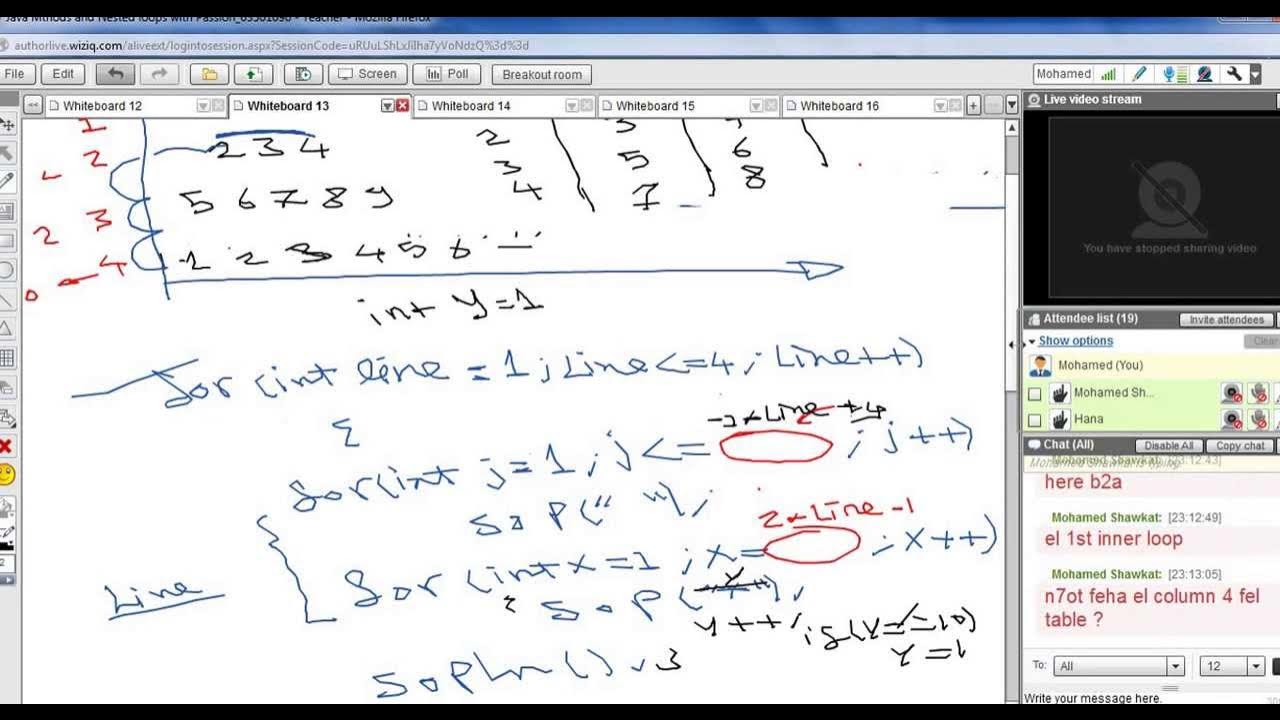 Java Mthods and Nested loops with Passion_03301090 - Teacher - Mozilla Firefox
authorlive.wiziq.com/aliveext/logintosession.aspx?SessionCode=uRUuLShLxJiIha7yVoNdzQ%3d%3d
File Edit Screen Poll Breakout room Mohamed
Whiteboard 12 Whiteboard 13 Whiteboard 14 Whiteboard 15 Whiteboard 16
Live video stream
You have stopped sharing video
1
2
2 3 4
2 3
3 5 6
4 7 8
3
5 6 7 8 9
2
4
1 2 3 4 5 6
0
int y=1
for (int line = 1 ; Line <= 4 ; Line++)
{
-2*Line + 4
for(int j=1 ; j <= ; j++)
S o P(" ");
2*Line -1
for (int x=1 ; x= ; x++)
Line
{ S o P( y );
y++; if(y==10)
y=1
S o Pln() ; }
Attendee list (19) Invite attendees
Show options Clear
Mohamed (You)
Mohamed Sh...
Hana
Chat (All) Disable All Copy chat
Mohamed Shawkat: [23:12:43]
Mohamed Shawkat is typing
here b2a
Mohamed Shawkat: [23:12:49]
el 1st inner loop
Mohamed Shawkat: [23:13:05]
n7ot feha el column 4 fel
table ?
To: All 12
Write your message here.